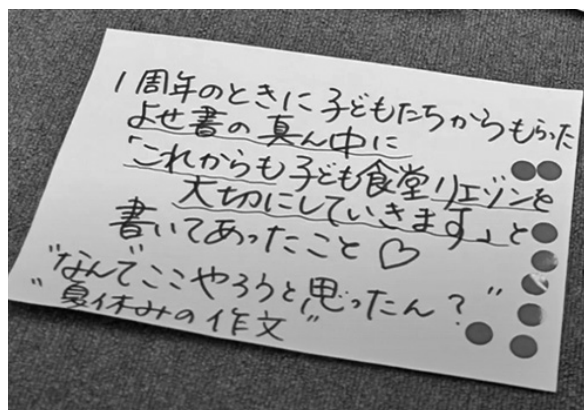 1周年のときに子どもたちからもらった
よせ書の真ん中に
「これからも子ども食堂リエゾンを
大切にしていきます」と
書いてあったこと♡
"なんでここやろうと思ったん？"
"夏休みの作文"